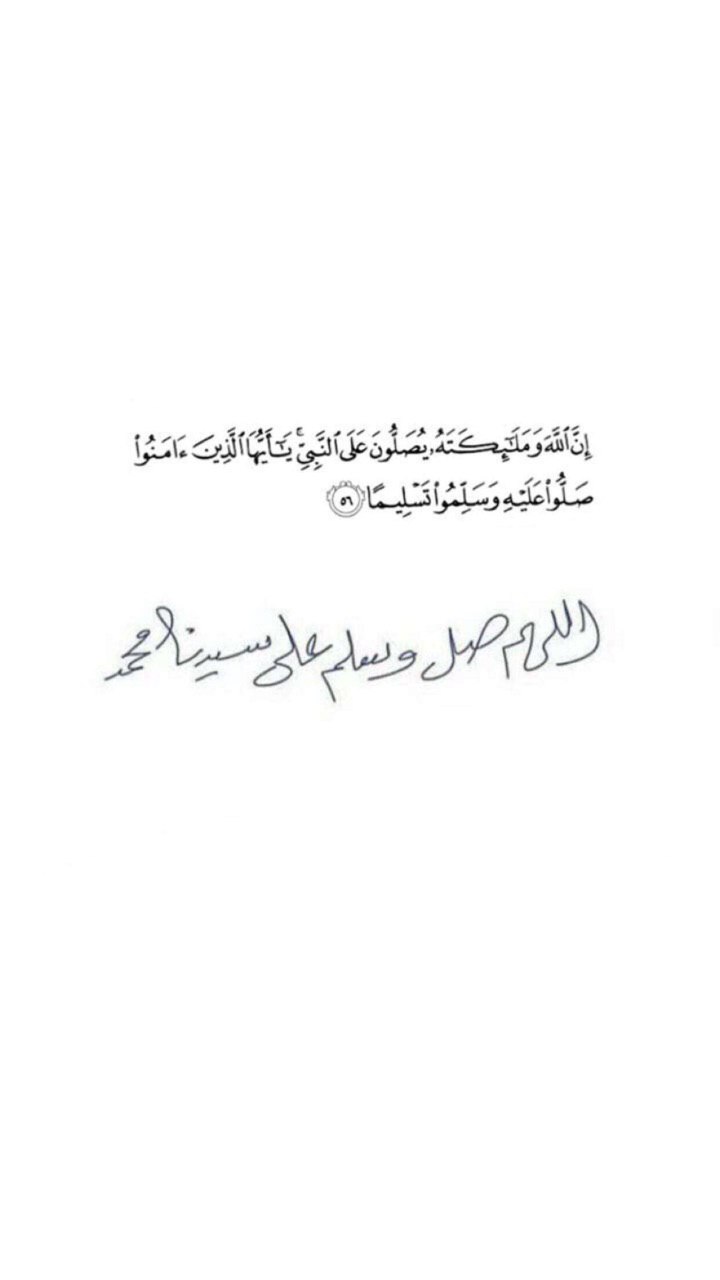 إِنَّ ٱللَّهَ وَمَلَـٰٓئِكَتَهُۥ يُصَلُّونَ عَلَى ٱلنَّبِىِّ ۚ يَـٰٓأَيُّهَا ٱلَّذِينَ ءَامَنُوا۟
صَلُّوا۟ عَلَيْهِ وَسَلِّمُوا۟ تَسْلِيمًا ٥٦
اللهم صل وسلم على سيدنا محمد